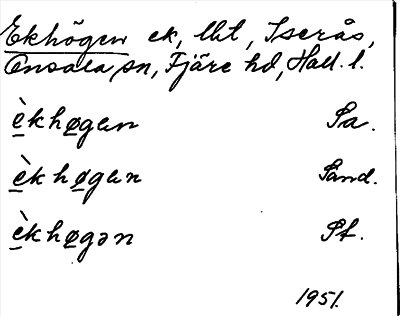 Ekhögen ek, lht, Iserås,
Onsala sn, Fjäre hd, Hall. l.
è̠khø̠gən Sa.
è̠khø̠gən Sand.
è̠khø̠gən St.
1951.